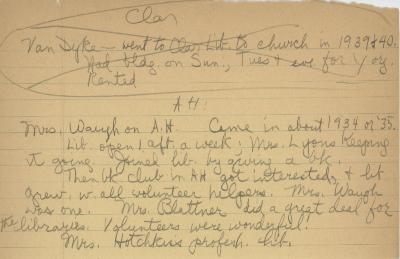 Clar
Van Dyke - went to Clar. Lib. to church in 1939 & 40.
Had bldg. on Sun., Tues & eve for y org.
Rented
AH:
Mrs. Waugh on A.H. Came in about 1934 or '35.
Lib. open 1 aft. a week; Mrs. Lyons keeping
it going. Joined lib. by giving a bk.
Then bk club in AH got interested, & lib
grew, w. all volunteer helpers. Mrs. Waugh
was one. Mrs. Blattner did a great deal for
the libraries. Volunteers were wonderful!
Mrs. Hotchkiss profesh. lib.